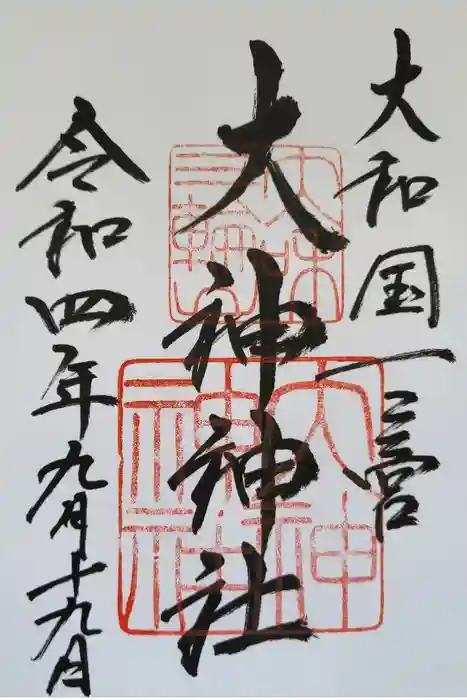 大和国一之宮
大神神社
令和四年九月十九日